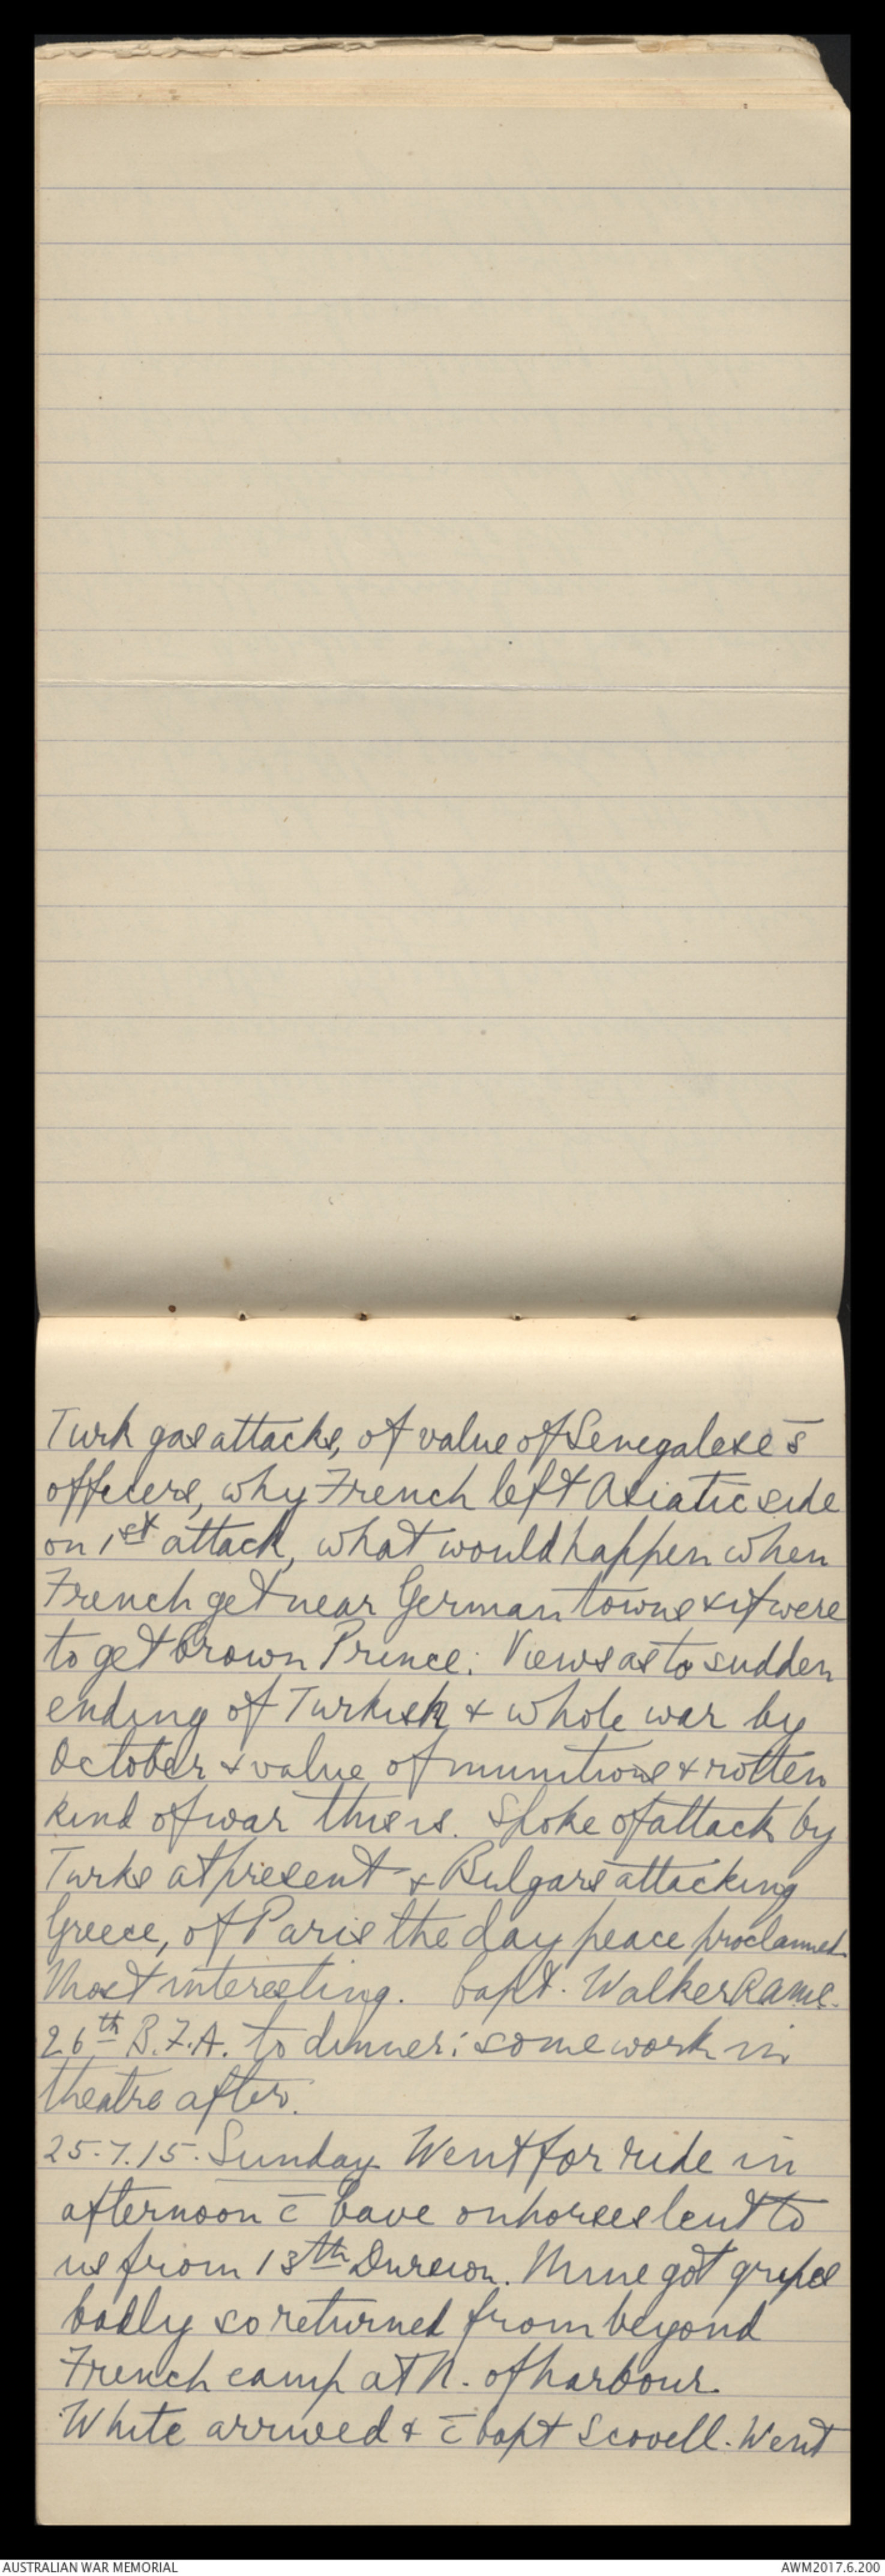 Turk gas attacks, of value of Senegalese s̄
officers, why French left Asiatic side
on 1st attack, what would happen when
French get near German towns & if were
to get Crown Prince: Views as to sudden
ending of Turkish & whole war by
October & value of munitions & rotten
kind of war this is. Spoke of attack by
Turks at present & Bulgars attacking
Greece, of Paris the day peace proclaimed
Most interesting. Capt. Walker RAMC.
26th B.F.A. to dinner: some work in
theatre after.
25.7.15. Sunday Went for ride in
afternoon c̄ Cave on horses lent to
us from 13th Division. Mine got gripes
badly so returned from beyond
French camp at N. of harbour.
White arrived & c̄ Capt Scovell. Went
AUSTRALIAN WAR MEMORIAL
AWM2017.6.200